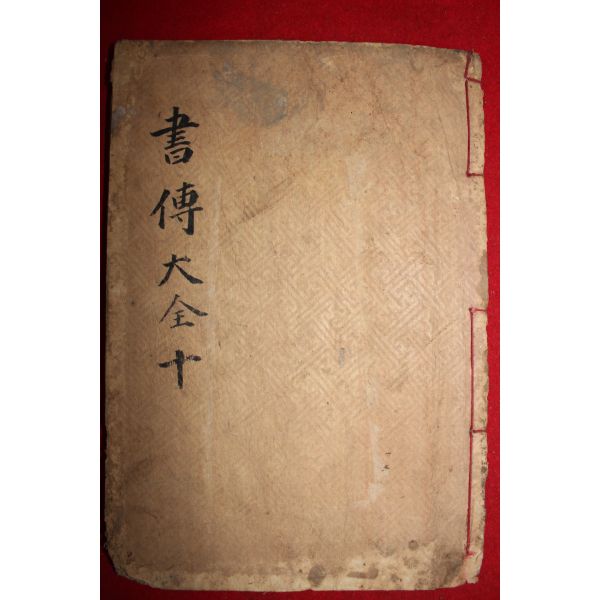 書傳大全十